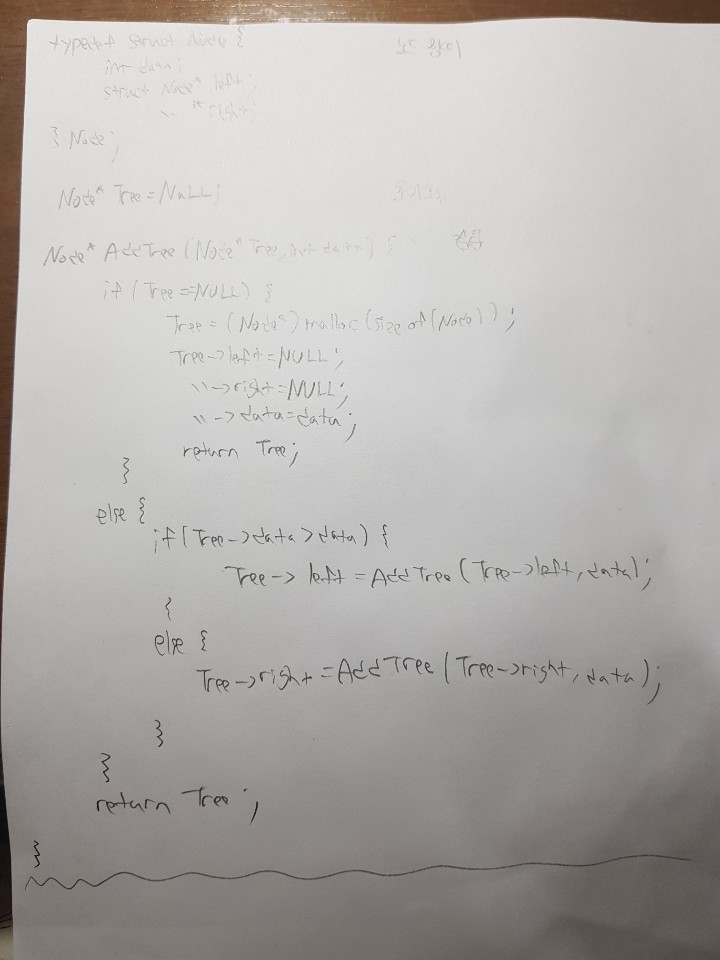 typedef struct Node { 노드 정의
int data;
struct Node* left;
〃 * right;
} Node;
Node* Tree = NULL;
Node* AddTree (Node* Tree, int data) {
if (Tree == NULL) {
Tree = (Node*) malloc (size of (Node));
Tree->left = NULL;
〃->right = NULL;
〃->data = data;
return Tree;
}
else {
if (Tree->data > data) {
Tree-> left = AddTree (Tree->left, data);
{
else {
Tree->right = AddTree (Tree->right, data);
}
}
return Tree ;
}